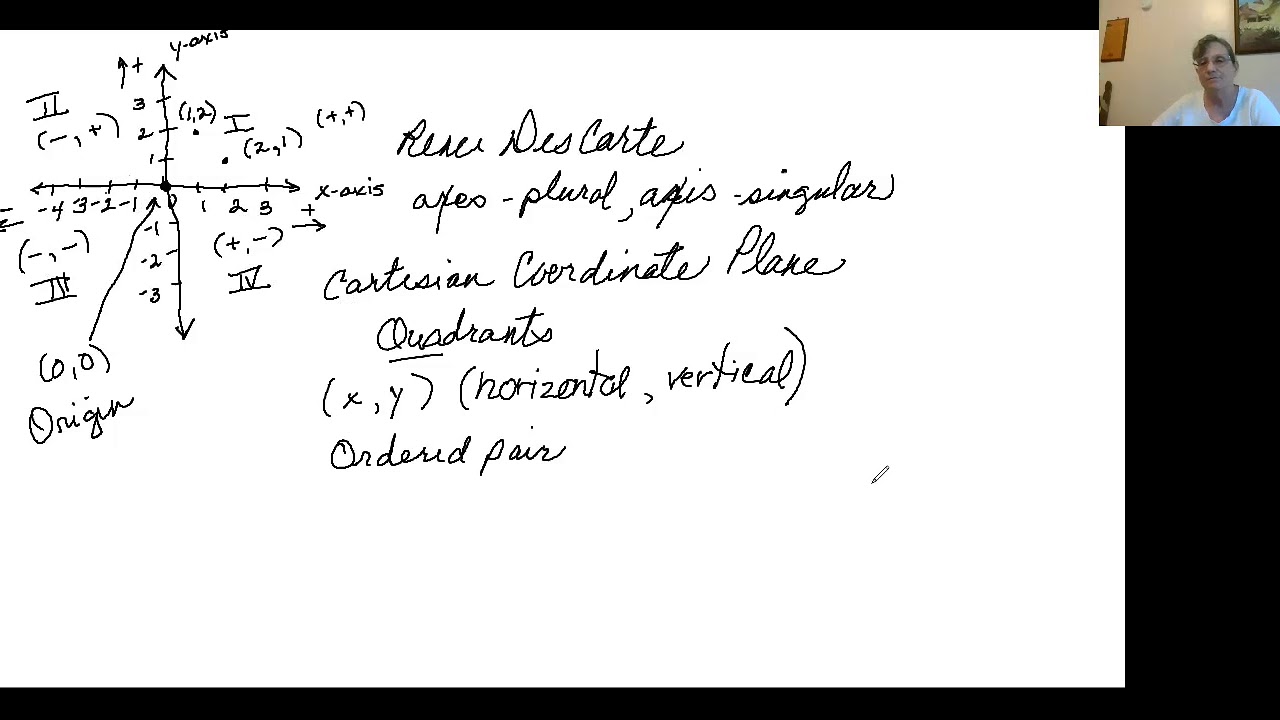 y-axis
+
II
3
(1,2)
I
(+,+)
(-,+)
2
(2,1)
1
x-axis
-4 3 -2 -1 0 1 2 3
- +
-1
(-,-)
(+,-)
-2
III
IV
-3
(0,0)
Origin
Renee DesCarte
axes - plural, axis - singular
Cartesian Coordinate Plane
Quadrants
(x,y) (horizontal, vertical)
Ordered pair